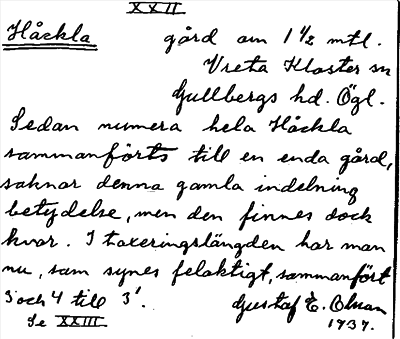 XXII
Håckla gård om 1 1/2 mtl.
Vreta Kloster sn
Gullbergs hd. Ögl.
Sedan numera hela Håckla
sammanförts till en enda gård,
saknar denna gamla indelning
betydelse, men den finnes dock
kvar. I taxeringslängden har man
nu, som synes felaktigt, sammanfört
3 och 4 till 3¹.
Gustaf E.
Se XXIII 1937.